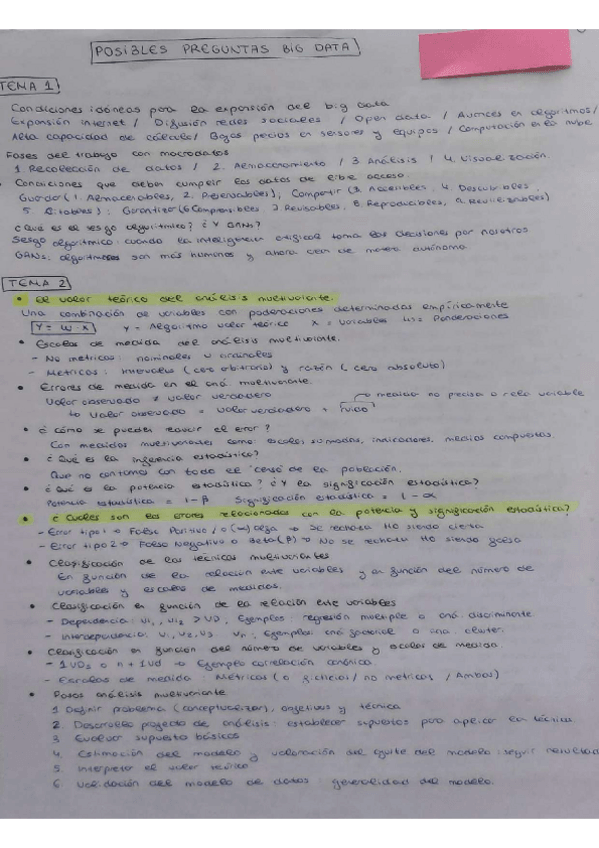 POSIBLES PREGUNTAS BIG DATA
TEMA 1
Condiciones idóneas para la expansión del big data
Expansión internet / Difusión redes sociales / Open data / Avances en algoritmos /
Alta capacidad de cálculo / Bajos precios en sensores y equipos / Computación en la nube
Fases del trabajo con macrodatos
1 Recolección de datos / 2. Almacenamiento / 3 Análisis / 4. Visualización.
Condiciones que deben cumplir los datos de libre acceso.
Guardar (1. Almacenables, 2. Preservables); Compartir (3. Accesibles, 4. Descubribles
5. Citables); Garantizar (6 Comprensibles 7 Revisables, 8. Reproducibles, 9. Reutilizables)
¿Qué es el sesgo algorítmico? ¿Y GANs?
Sesgo algorítmico: cuando la inteligencia artificial toma las decisiones por nosotros
GANs: algoritmos son más humanos y ahora crean de manera autónoma
TEMA 2
• El valor teórico del análisis multivariante.
Una combinación de variables con ponderaciones determinadas empíricamente
Y = W · X Y = Algoritmo valor teórico X = Variables W = Ponderaciones
• Escalas de medida del análisis multivariante.
- No métricas: nominales u ordinales
- Métricas: Intervalos (cero arbitrario) y razón (cero absoluto)
• Errores de medida en el aná multivariante.
Valor observado ≠ valor verdadero
↳ Valor observado = valor verdadero + ruido → medida no precisa o relo variable
• ¿Cómo se pueden reducir el error?
Con medidas multivariantes como: escalas sumadas, indicadores, medias compuestas.
• ¿Qué es la inferencia estadística?
Que no contamos con todo el censo de la población.
• ¿Qué es la potencia estadística? ¿Y la significación estadística?
Potencia estadística = 1 - β Significación estadística = 1 - α
• ¿Cuáles son los errores relacionados con la potencia y significación estadística?
- Error tipo 1 → Falso Positivo / o (α) alfa → Se rechaza H0 siendo cierta
- Error tipo 2 → Falso Negativo o Beta (β) → No se rechaza H0 siendo falsa
• Clasificación de las técnicas multivariantes
En función de la relación entre variables y en función del número de
variables y escalas de medidas.
• Clasificación en función de la relación entre variables
- Dependencia: VI1, VI2 > VD, Ejemplos: regresión múltiple o aná. discriminante
- Interdependencia: V1, V2, V3 Vn; Ejemplos: aná factorial o aná. cluster.
• Clasificación en función del número de variables y escalas de medida
- 1 VDs o n + 1 Vd → Ejemplo correlación canónica.
- Escalas de medida: Métricas (o ficticia) / no métricas / Ambas)
• Pasos análisis multivariante
1 Definir problema (conceptualizar), objetivos y técnica
2. Desarrollo proyecto de análisis: establecer supuestos para aplicar la técnica.
3 Evaluar supuesto básicos
4. Estimación del modelo y valoración del ajuste del modelo: seguir
5. Interpretar el valor teórico
6 Validación del modelo de datos: generalidad del modelo.